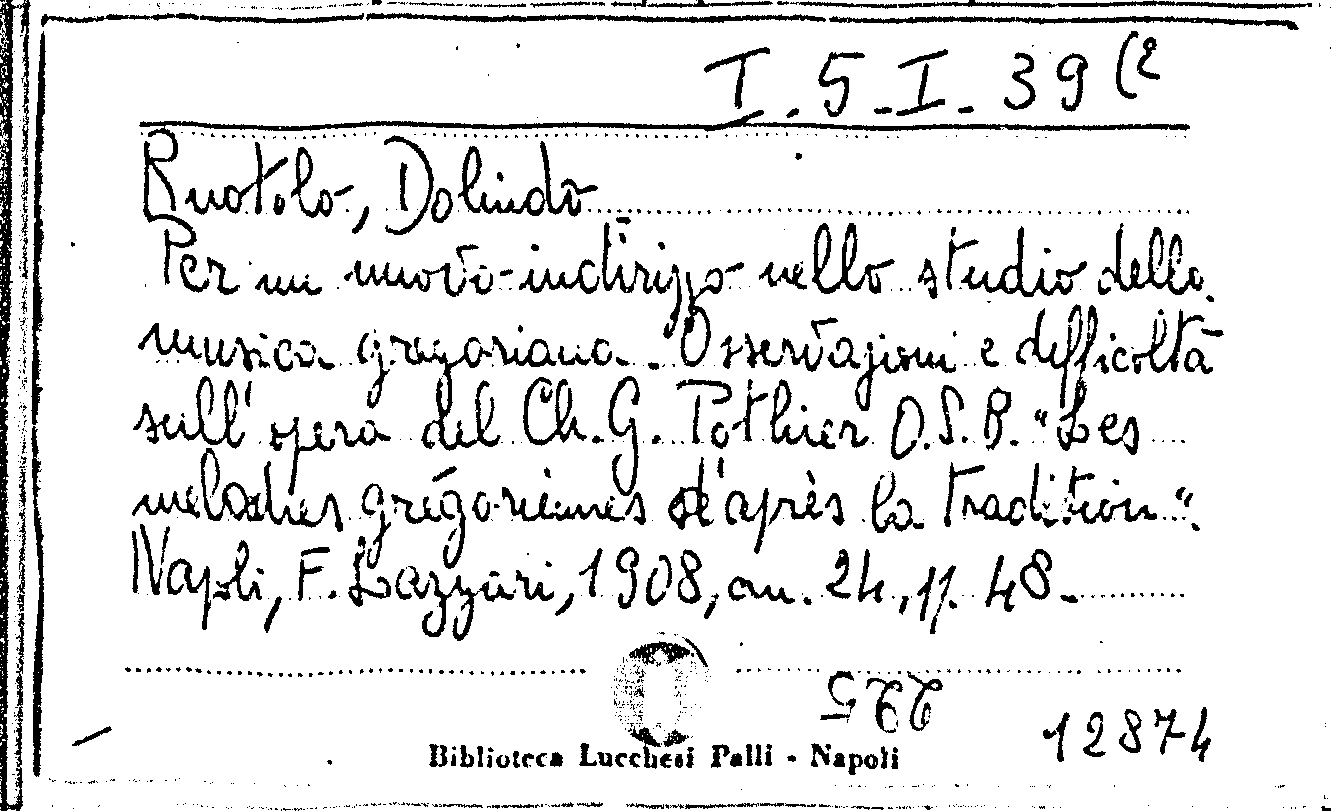 I.5.I.39(2
Ruotolo, Dolindo
Per un nuovo indirizzo nello studio della
musica gregoriana. Osservazioni e difficoltà
sull'opera del Ch. G. Pothier O.S.B. "Les
melodies grégoriènnes d'après la tradition".
Napoli, F. Lazzari, 1908, cm. 24, pp. 48.
12874
Biblioteca Lucchesi Palli - Napoli